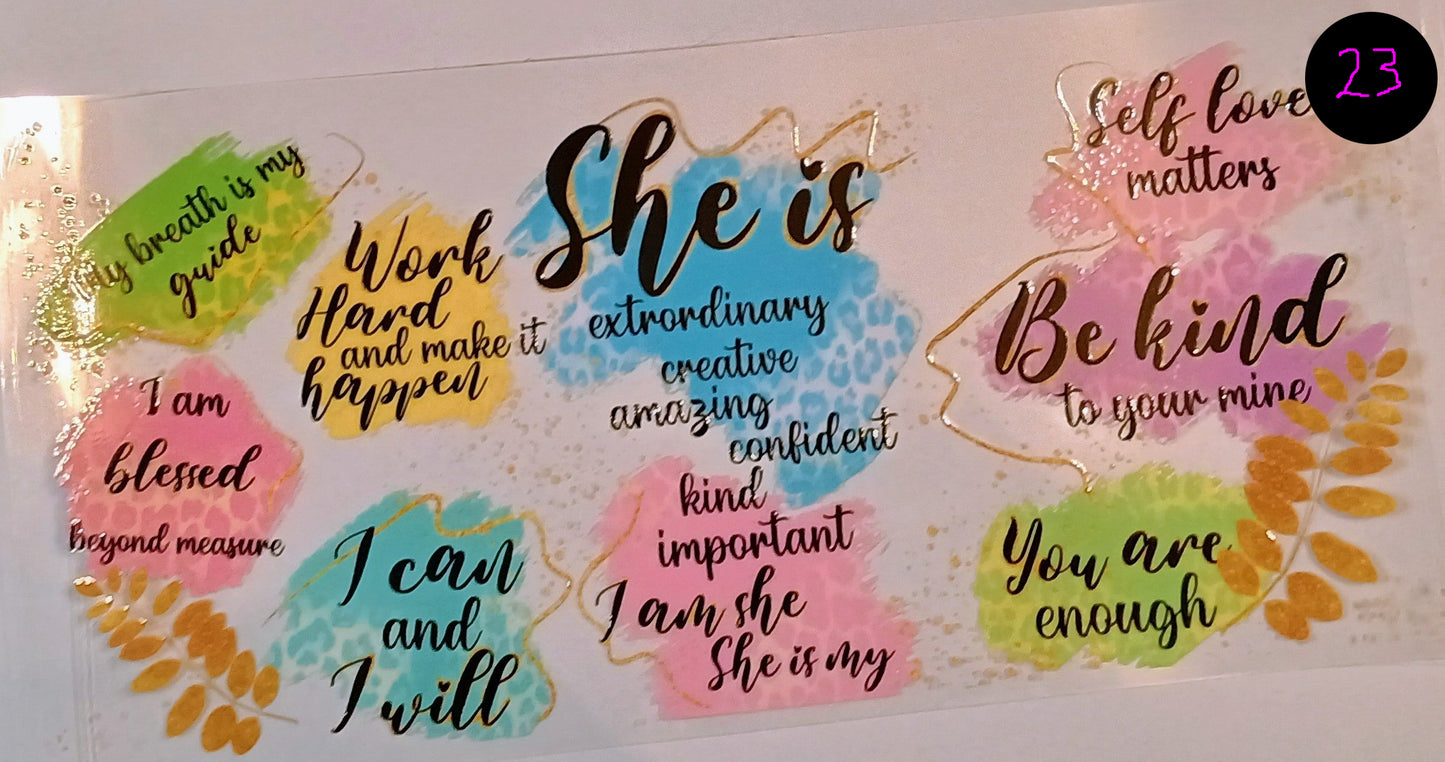 My breath is my
guide
Work
Hard
and make it
happen
I am
blessed
beyond measure
I can
and
I will
She is
extrordinary
creative
amazing
confident
kind
important
I am she
She is my
Self love
matters
Be kind
to your mine
You are
enough
23